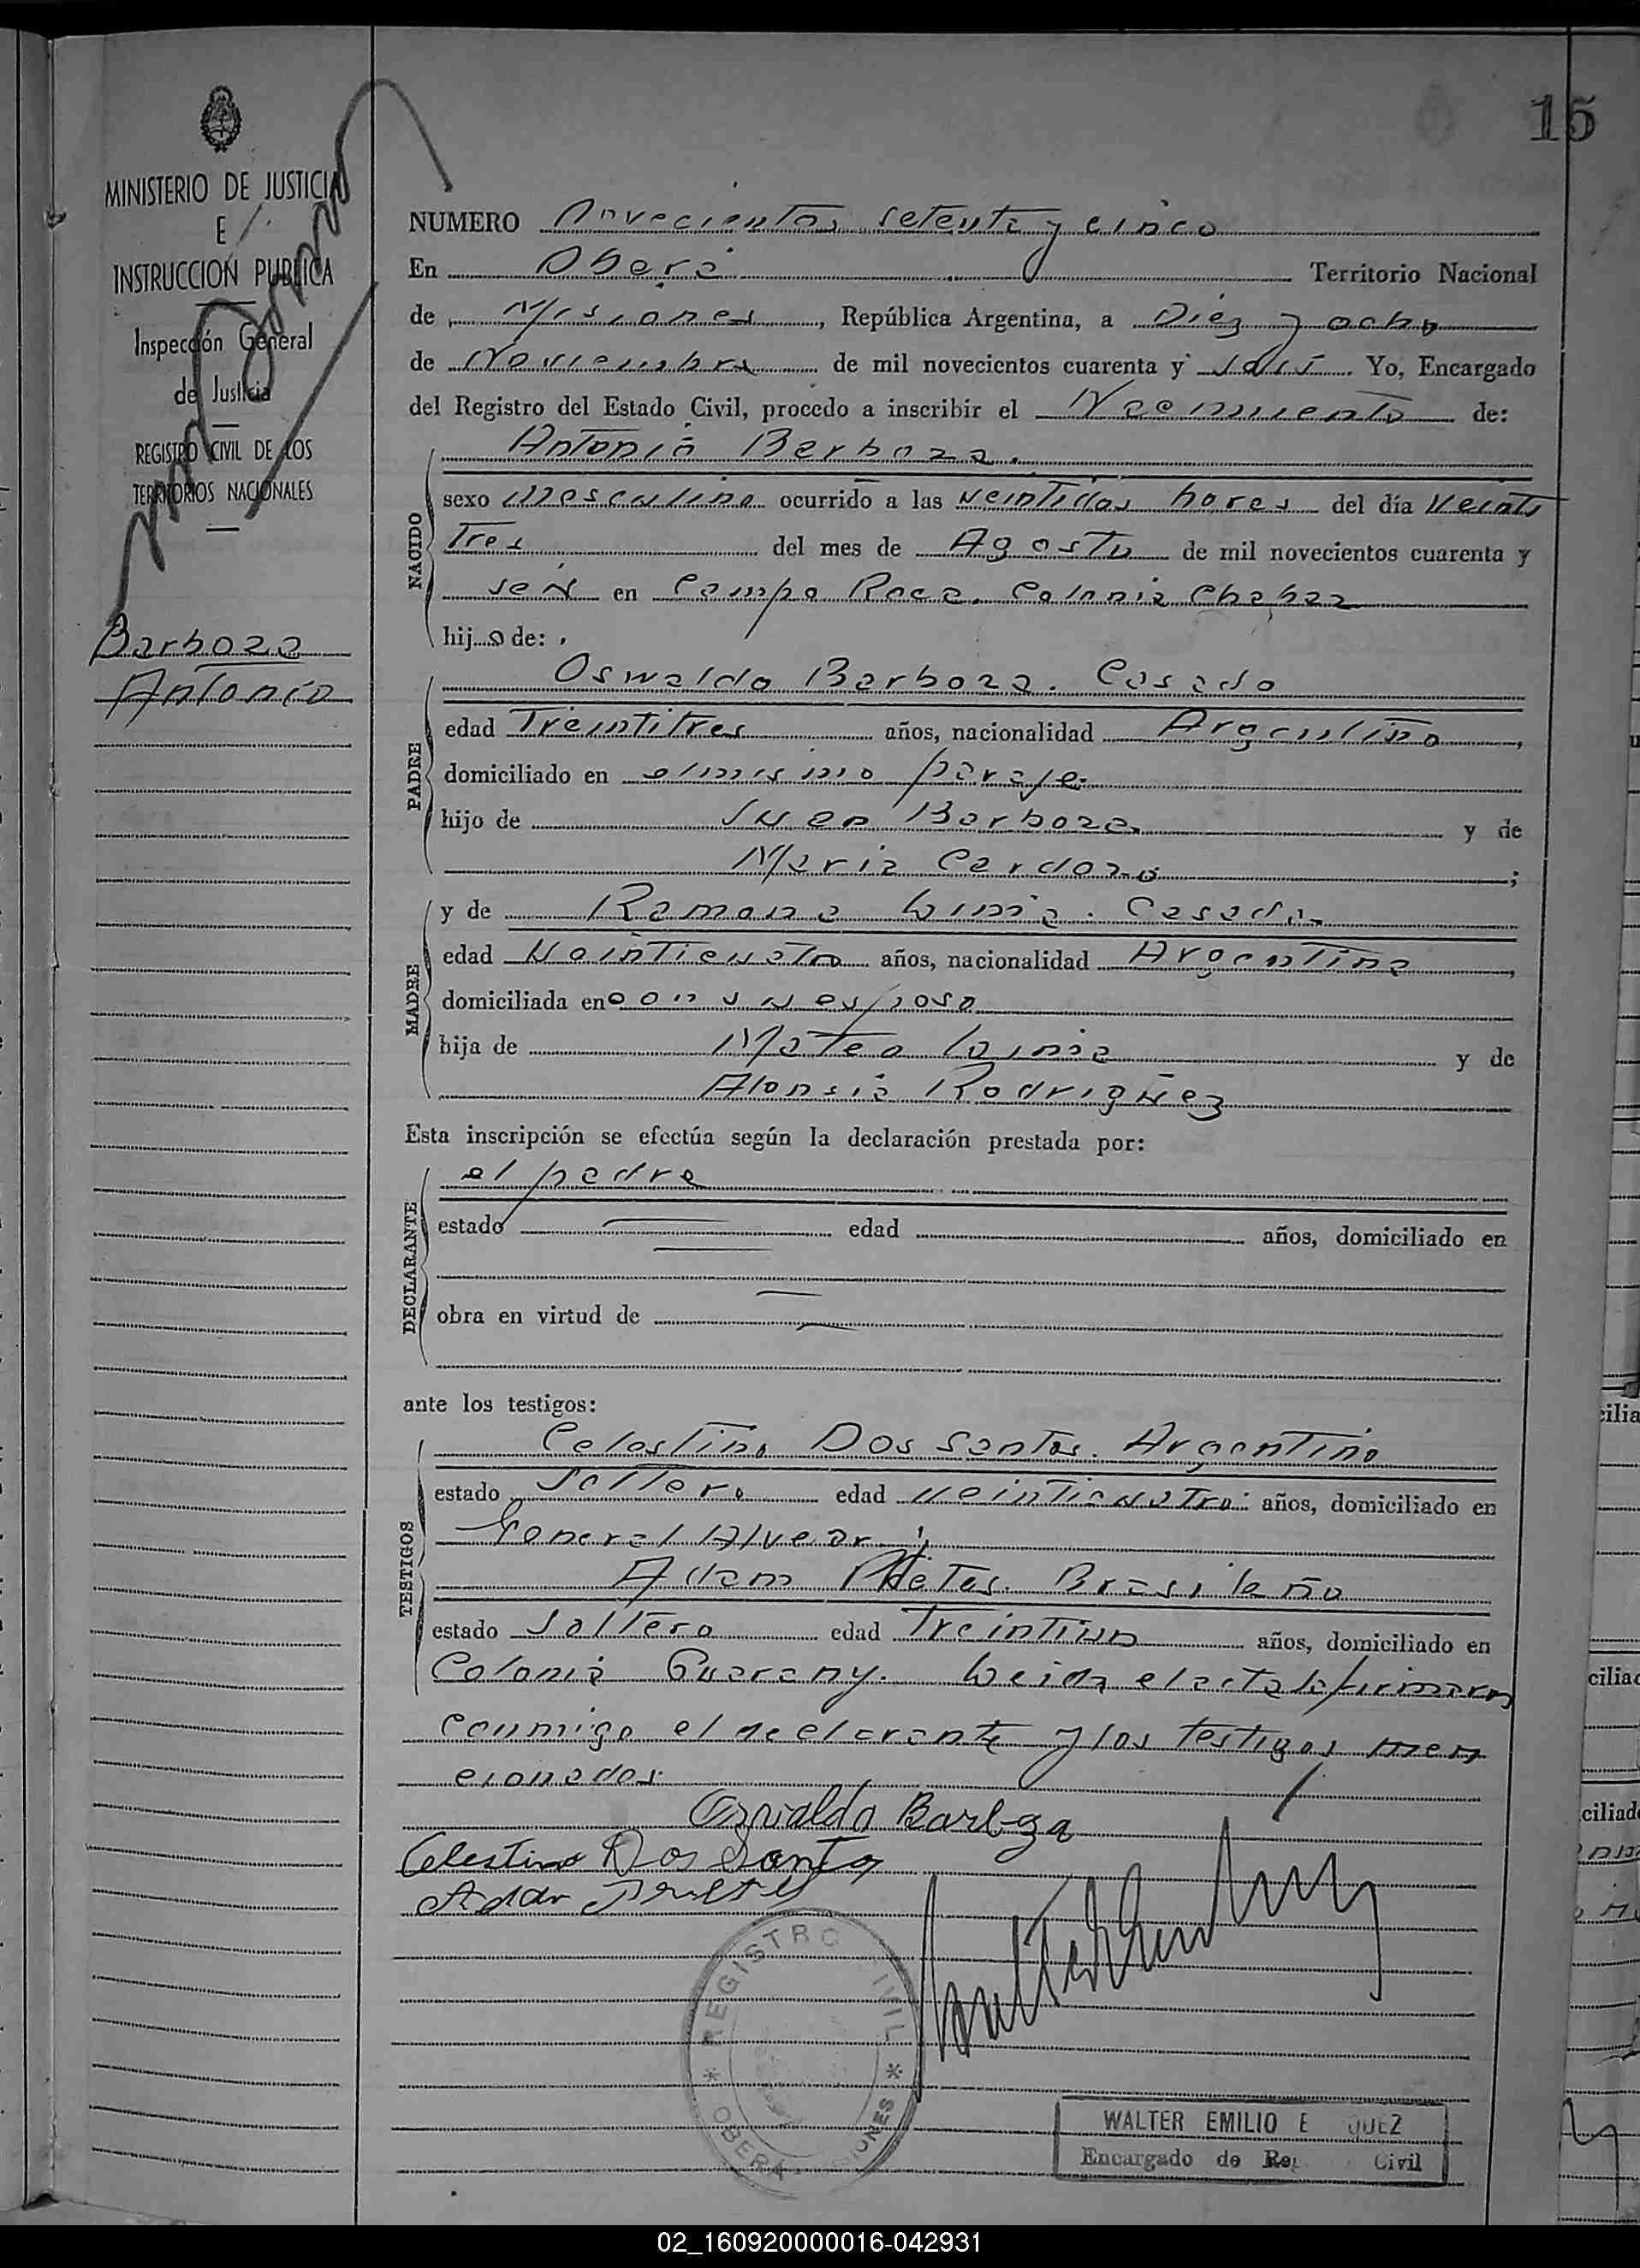 15
MINISTERIO DE JUSTICIA
E
INSTRUCCION PUBLICA
Inspección General
de Justicia
REGISTRO CIVIL DE LOS
TERRITORIOS NACIONALES
Barboza
Antonio
NUMERO Novecientos setenta y cinco
En Oberá Territorio Nacional
de Misiones, República Argentina, a Diez y ocho
de Noviembre de mil novecientos cuarenta y seis. Yo, Encargado
del Registro del Estado Civil, procedo a inscribir el Nacimiento de:
Antonio Barboza.
NACIDO
sexo masculino ocurrido a las veintidos horas del día veinti
tres del mes de Agosto de mil novecientos cuarenta y
seis en Campo Roca. Colonia Chapaz
hijo de:
PADRE
Oswaldo Barboza. Casado
edad Treintitres años, nacionalidad Argentino,
domiciliado en el mismo paraje.
hijo de Juan Barboza y de
Maria Cardozo;
MADRE
y de Ramona Casada.
edad Veinticuatro años, nacionalidad Argentina,
domiciliada en con su esposo
hija de Mateo y de
Rodriguez
Esta inscripción se efectúa según la declaración prestada por:
DECLARANTE
el padre
estado edad años, domiciliado en
obra en virtud de
ante los testigos:
TESTIGOS
Celestino Dos Santos. Argentino
estado Soltero edad veinticuatro años, domiciliado en
General Alvear y
Adam Brasileño
estado Soltero edad Treintiun años, domiciliado en
Colonia Guarany. Leida el acta la firmaron
conmigo el declarante y los testigos men
cionados.
Osvaldo Barboza
Celestino Dos Santos
REGISTRO CIVIL
* OBERA MISIONES *
WALTER EMILIO E QUEZ
Encargado de Reg Civil
02_160920000016-042931